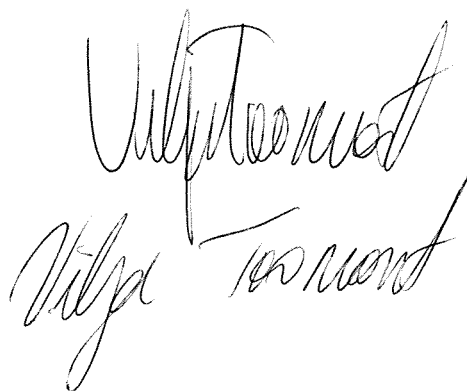 Vilja Toomast
Vilja Toomast